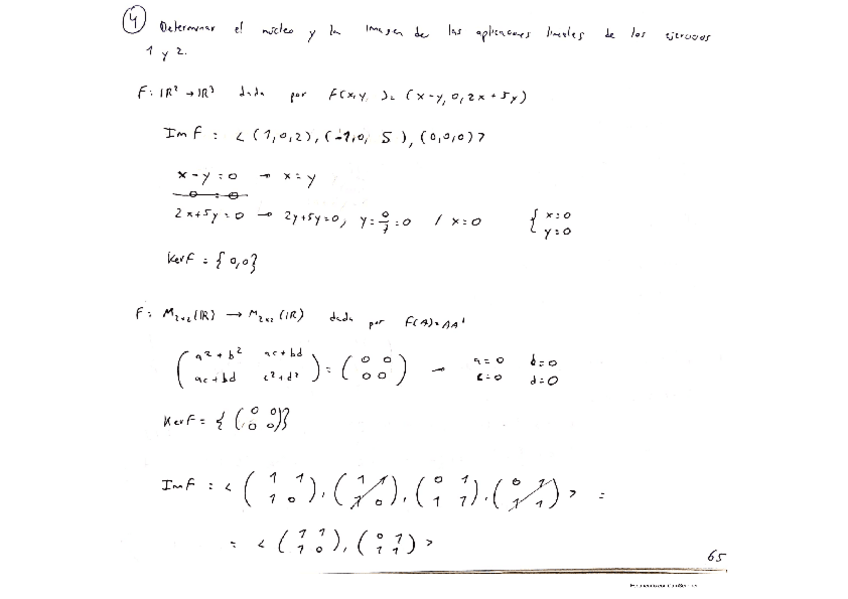 4 Determinar el núcleo y la imagen de las aplicaciones lineales de los ejercicios
1 y 2.
F: IR² → IR³ dada por F(x,y, )= (x-y, 0, 2x+5y)
Im F : < (1,0,2), (-1,0, 5), (0,0,0) >
x - y = 0 → x = y
0 = 0
2x+5y=0 → 2y+5y=0, y = 0/7 = 0 / x=0 { x=0
y=0
Ker F = {0,0}
F: M₂ₓ₂(IR) → M₂ₓ₂(IR) dada por F(A)=AAᵗ
( a²+b² ac+bd ) = ( 0 0 ) → a=0 b=0
( ac+bd c²+d² ) ( 0 0 ) c=0 d=0
Ker F = { ( 0 0 ) }
( 0 0 )
Im F : < ( 1 1 ), ( 1 1 ), ( 0 1 ), ( 0 1 ) > =
( 1 0 ) ( 1 0 ) ( 1 1 ) ( 1 1 )
= < ( 1 1 ), ( 0 1 ) >
( 1 0 ) ( 1 1 )
65